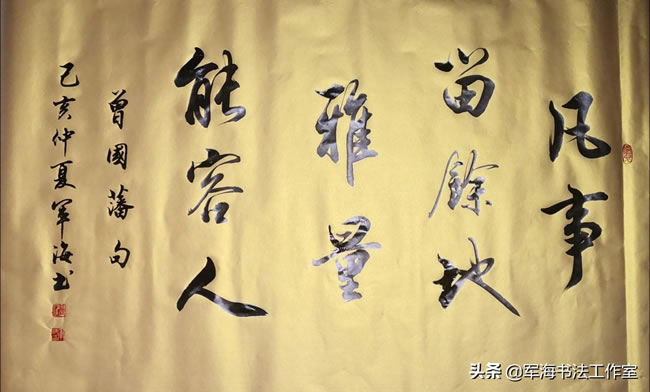 凡事
留餘地
雅量
能容人
曾國藩句
己亥仲夏軍海书
头条@军海书法工作室